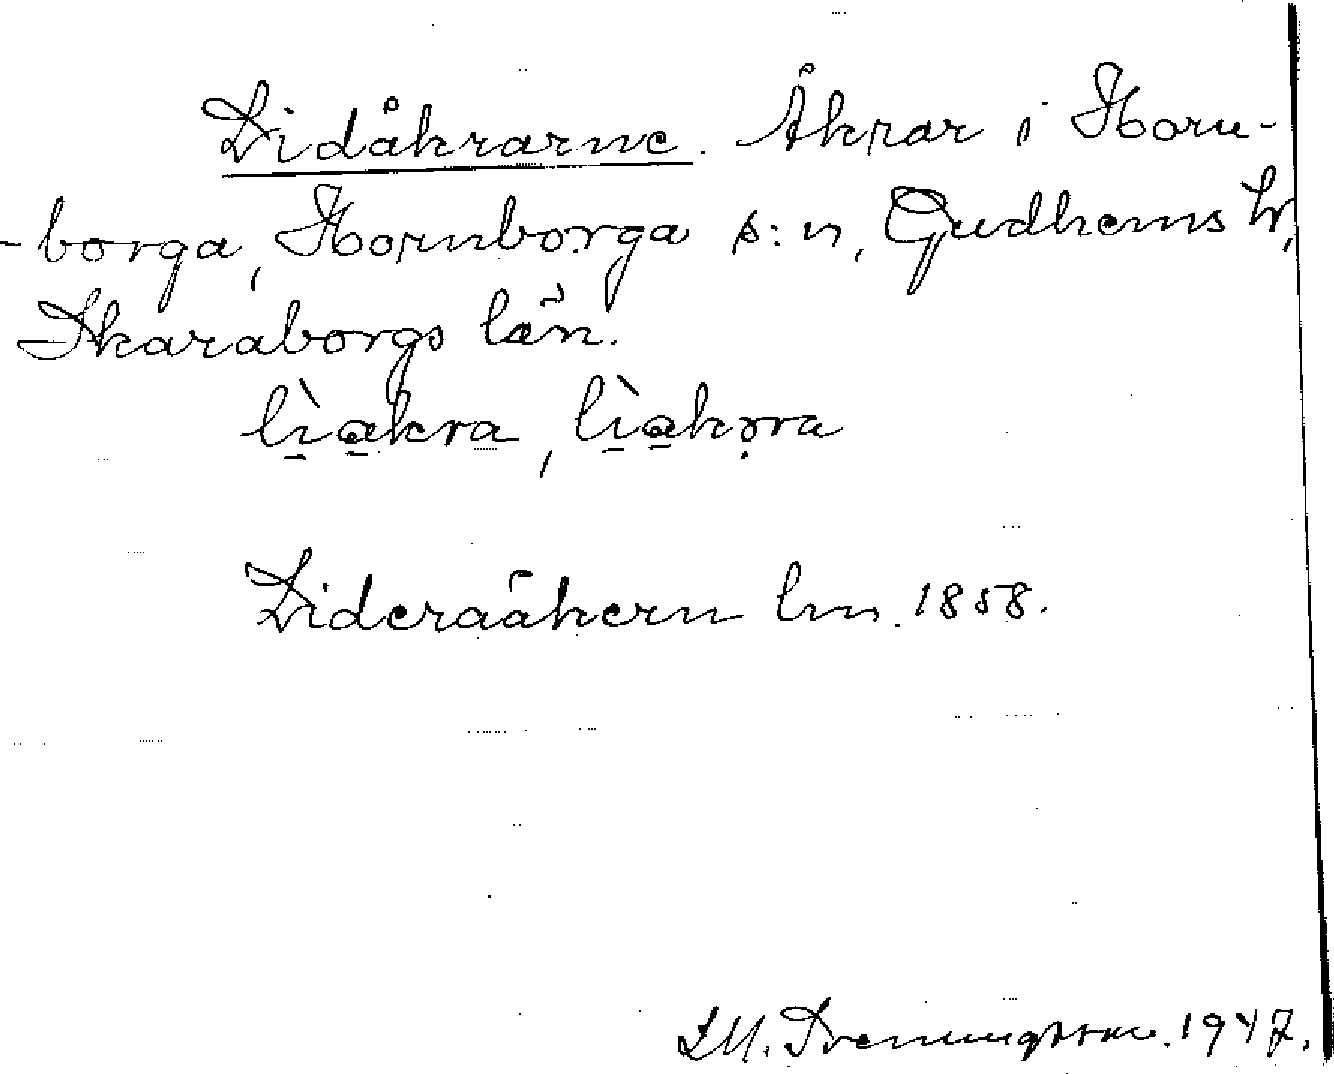 Lidåkrarne. Åkrar i Horn-
-borga, Hornborga s:n, Gudhems hr,
Skaraborgs län.
lìakra, lìakra
Lideraåkern lm. 1858.
1947.